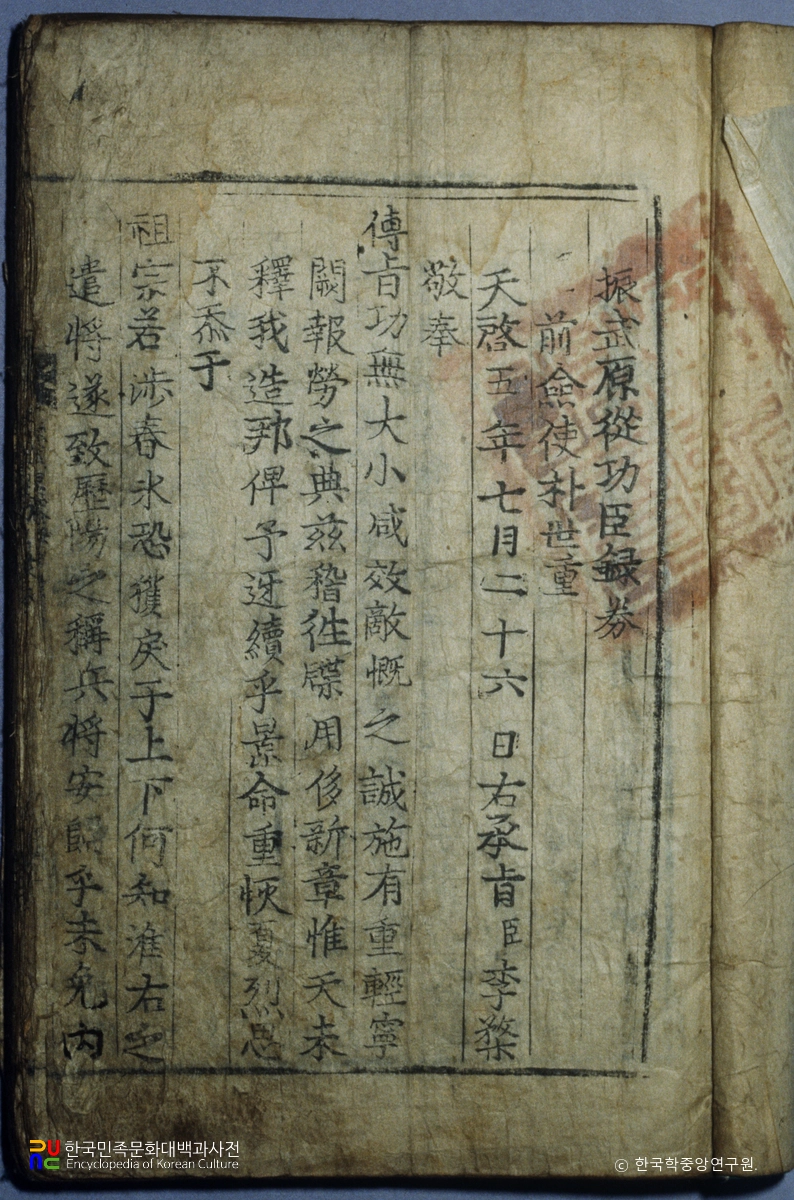 振武原從功臣録券
前僉使朴世重
天啓五年七月二十六日右承旨臣李
敬奉
傳旨功無大小咸效敵慨之誠施有重輕寧
闕報勞之典玆稽徃牒用侈新章惟天未
釋我造邦俾予迓續乎景命重恢夏烈思
不忝于
祖宗若涉春氷恐獲戾于上下何知淮右之
遣將遂致歷陽之稱兵將安歸乎未免內
한국민족문화대백과사전
Encyclopedia of Korean Culture
© 한국학중앙연구원.